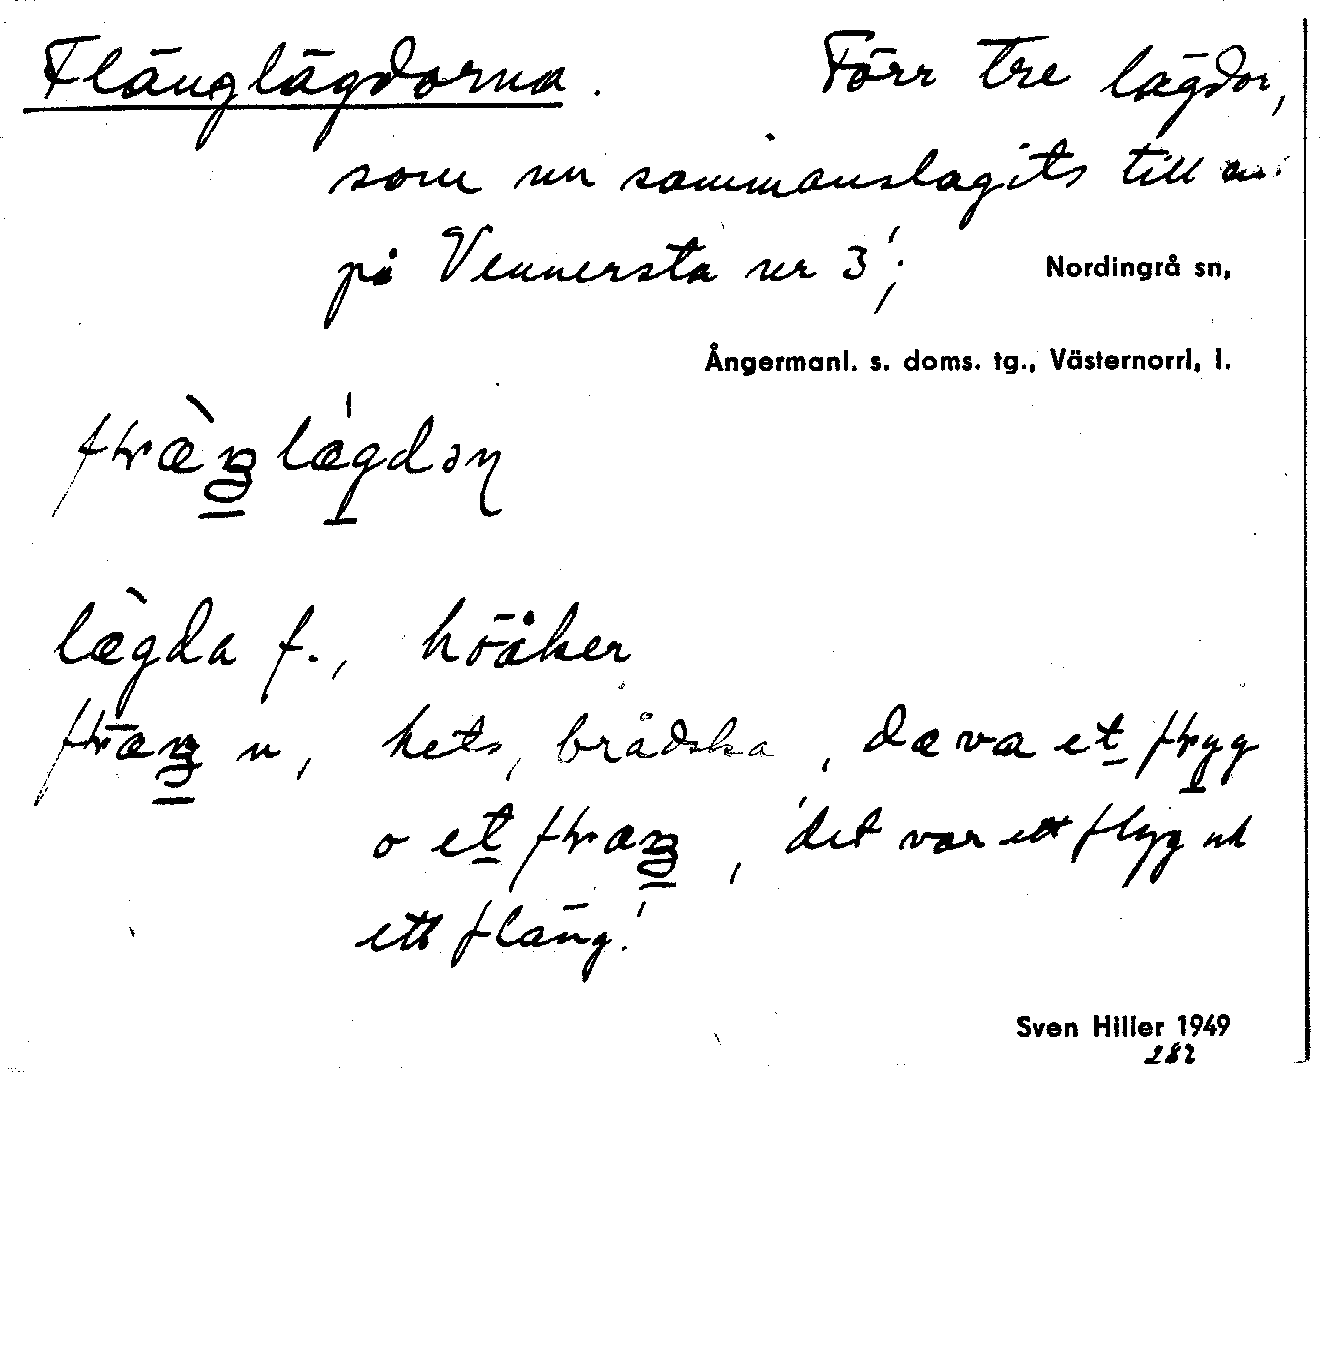 Flänglägdorna. Förr tre lägdor,
som nu sammanslagits till en
på Vennersta nr 3;
Nordingrå sn,
Ångermanl. s. doms. tg., Västernorrl. l.
lægda f., höåker
n, hets, brådska, dæ va et
o et , 'det var ett flyg och
ett fläng.'
Sven Hiller 1949
282